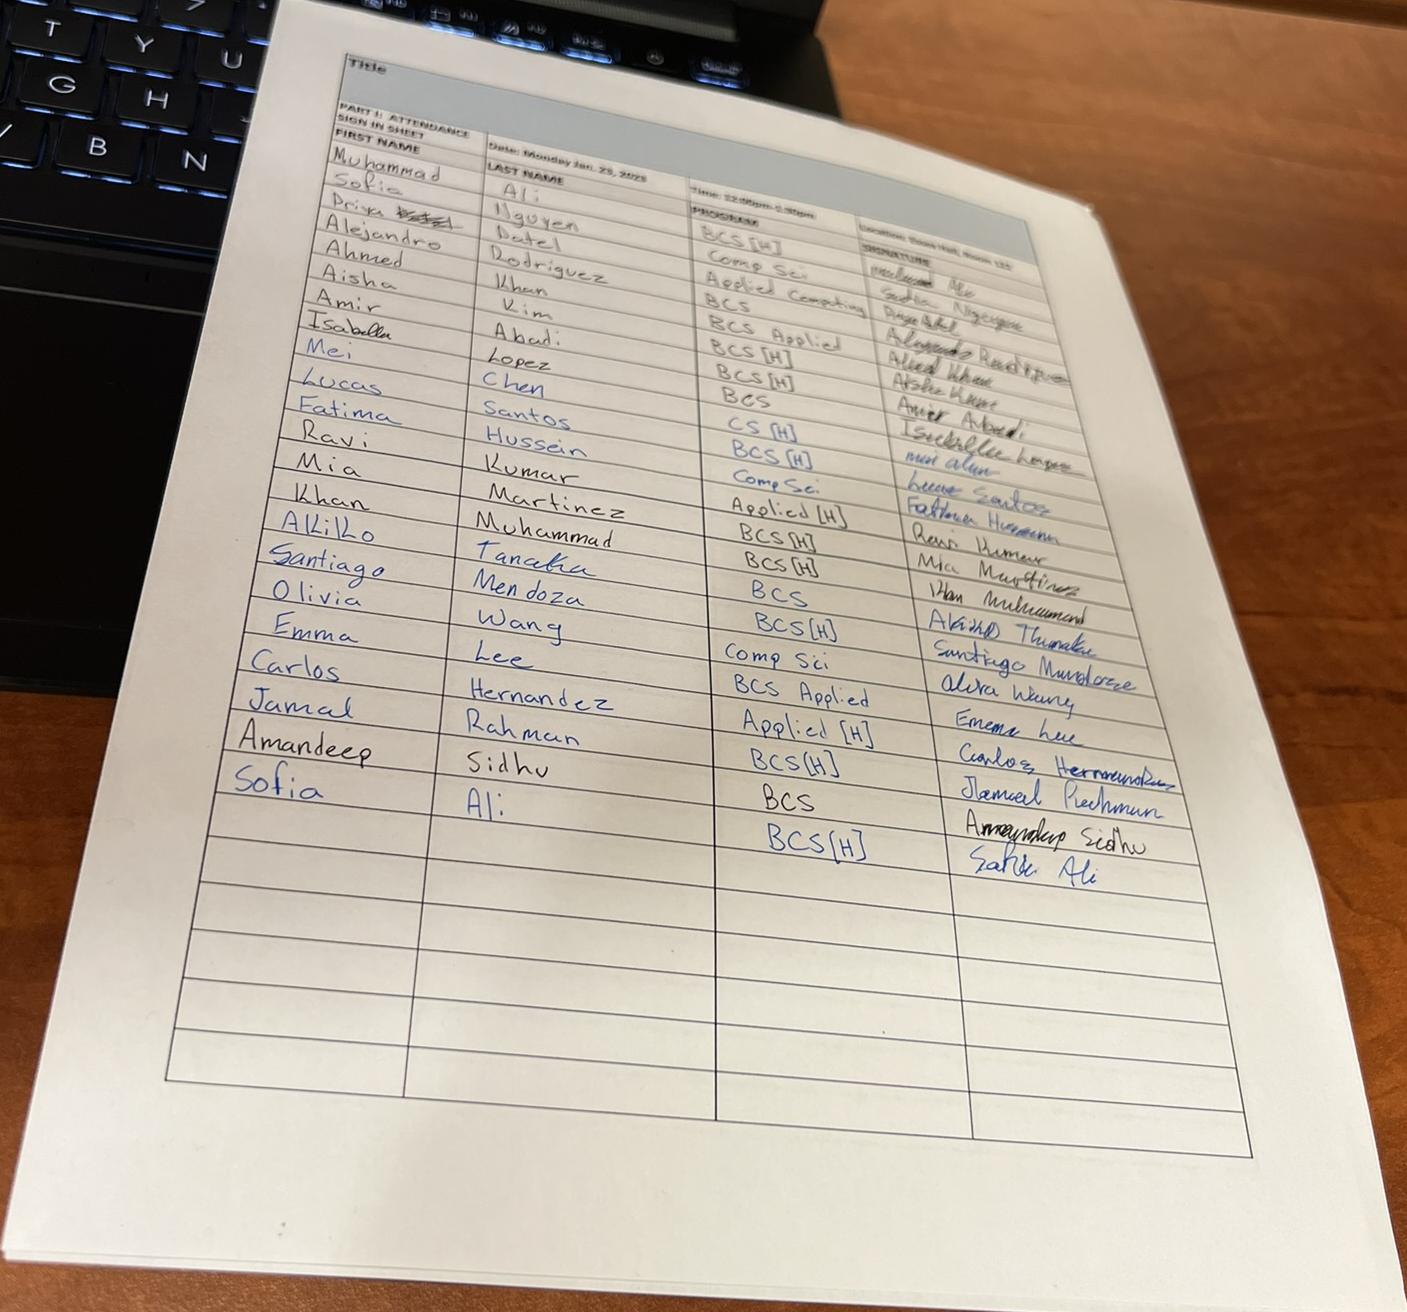 T Y U
G H
B N
Title
PART 1: ATTENDANCE SIGN IN SHEET Date: Monday Jan. 29, 2025 Time: 12:00pm-1:30pm
FIRST NAME LAST NAME PROGRAM SIGNATURE
Muhammad Ali BCS [H] Ali
Sofia Nguyen Comp Sci
Priya Patel Applied Computing
Alejandro Rodriguez BCS Rodriguez
Ahmed Khan BCS Applied Khan
Aisha Kim BCS [H] Aisha
Amir Abadi BCS [H] Amir Abadi
Isabella Lopez BCS Isabella Lopez
Mei Chen CS [H]
Lucas Santos BCS [H] Lucas Santos
Fatima Hussein Comp Sci Fatima Hussein
Ravi Kumar Applied [H] Ravi Kumar
Mia Martinez BCS [H] Mia Martinez
Khan Muhammad BCS [H] Khan Muhammad
Akiko Tanaka BCS
Santiago Mendoza BCS [H] Santiago
Olivia Wang Comp Sci Wang
Emma Lee BCS Applied Lee
Carlos Hernandez Applied [H] Carlos Hernandez
Jamal Rahman BCS [H] Jamal
Amandeep Sidhu BCS Amandeep Sidhu
Sofia Ali BCS [H] Ali